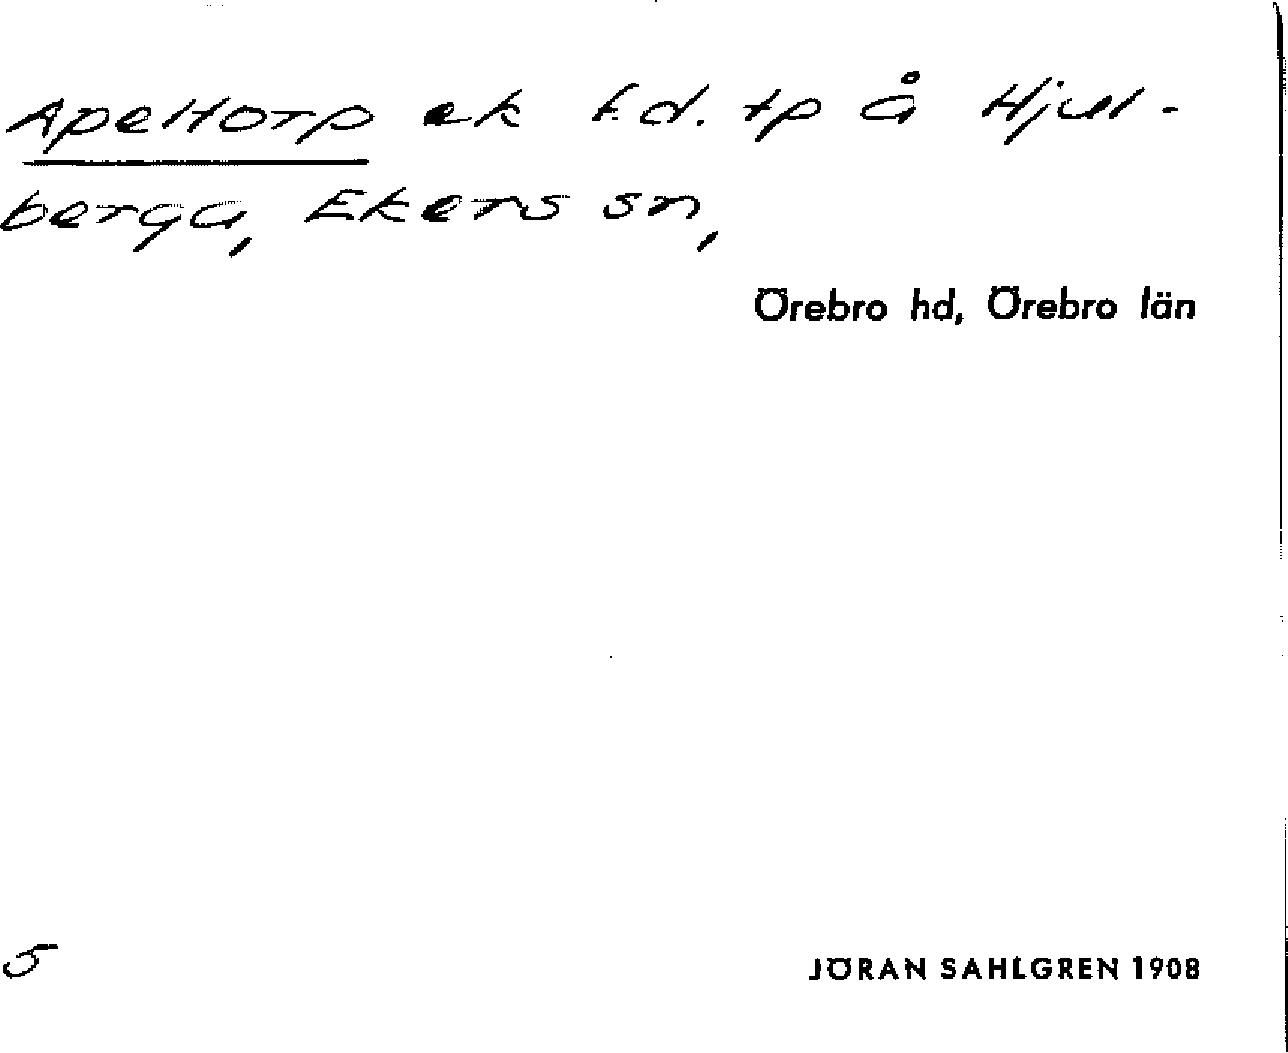 Apeltorp ek f.d. tp å Hjul-
berga, Ekers sn,
Örebro hd, Örebro län
5
JÖRAN SAHLGREN 1908